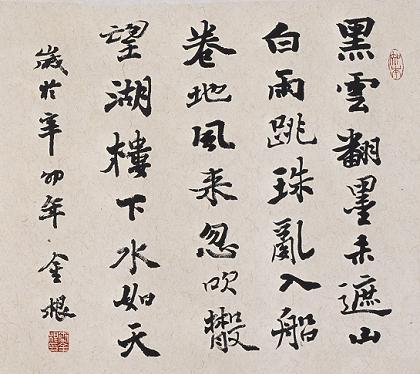 黑雲翻墨未遮山
白雨跳珠亂入船
卷地風来忽吹散
望湖樓下水如天
歲於辛卯年 金根